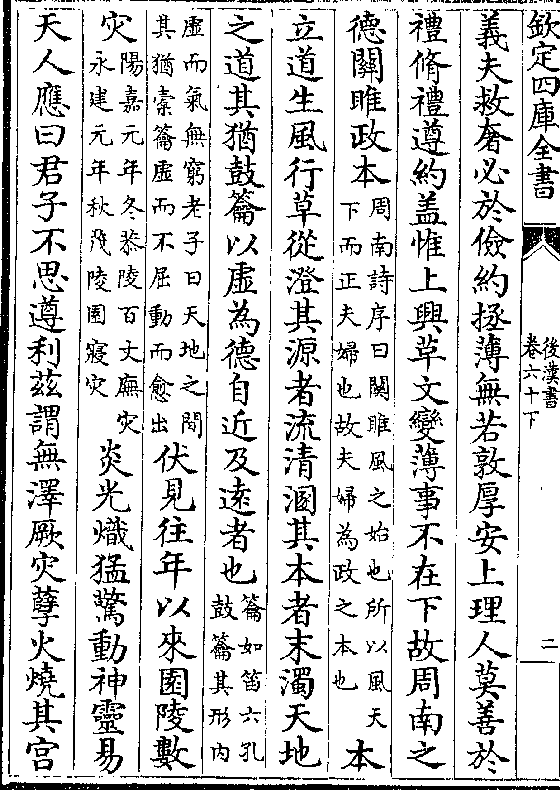 欽定四庫全書
後漢書
卷六十下
二
義夫救奢必於儉約拯薄無若敦厚安上理人莫善於
禮脩禮遵約盖惟上興革文變薄事不在下故周南之
德關雎政本
周南詩序曰關雎風之始也所以風天
下而正夫婦也故夫婦為政之本也
本
立道生風行草從澄其源者流清溷其本者末濁天地
之道其猶鼓籥以虛為德自近及遠者也
籥如笛六孔
鼓籥其形内
虛而氣無窮老子曰天地之間
其猶橐籥虛而不屈動而愈出
伏見往年以來園陵數
灾
陽嘉元年冬恭陵百丈廡灾
永建元年秋茂陵園寢灾
炎光熾猛驚動神靈易
天人應曰君子不思遵利茲謂無澤厥灾孽火燒其宫